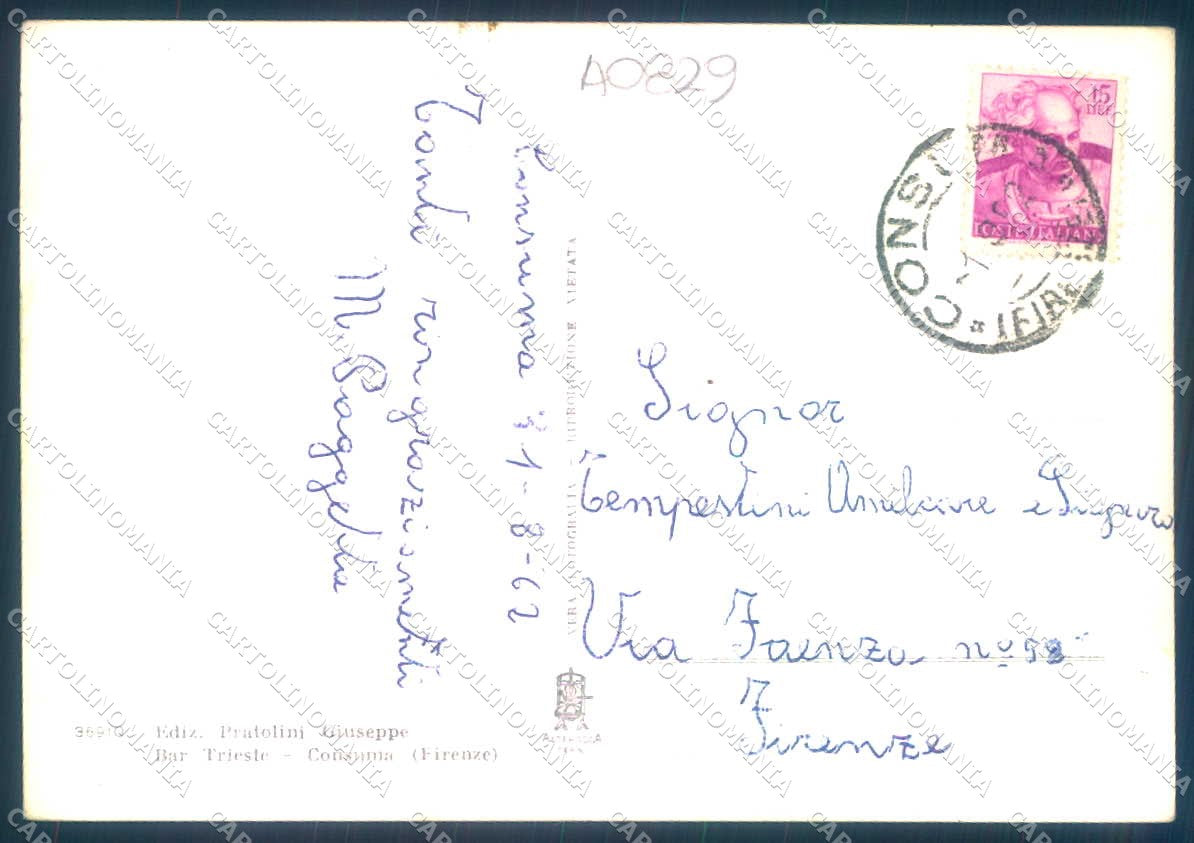 A0829
Consuma 31-8-62
Tanti ringraziamenti
M.
15
POSTE ITALIANE
CONSUMA
(FIRENZE)
VERA FOTOGRAFIA - RIPRODUZIONE VIETATA
Signor
Tempestini Amelcare e Signora
Via Faenza nº 58
Firenze
Ediz. Pratolini Giuseppe
Bar Trieste - Consuma (Firenze)
CARTOLINOMANIA